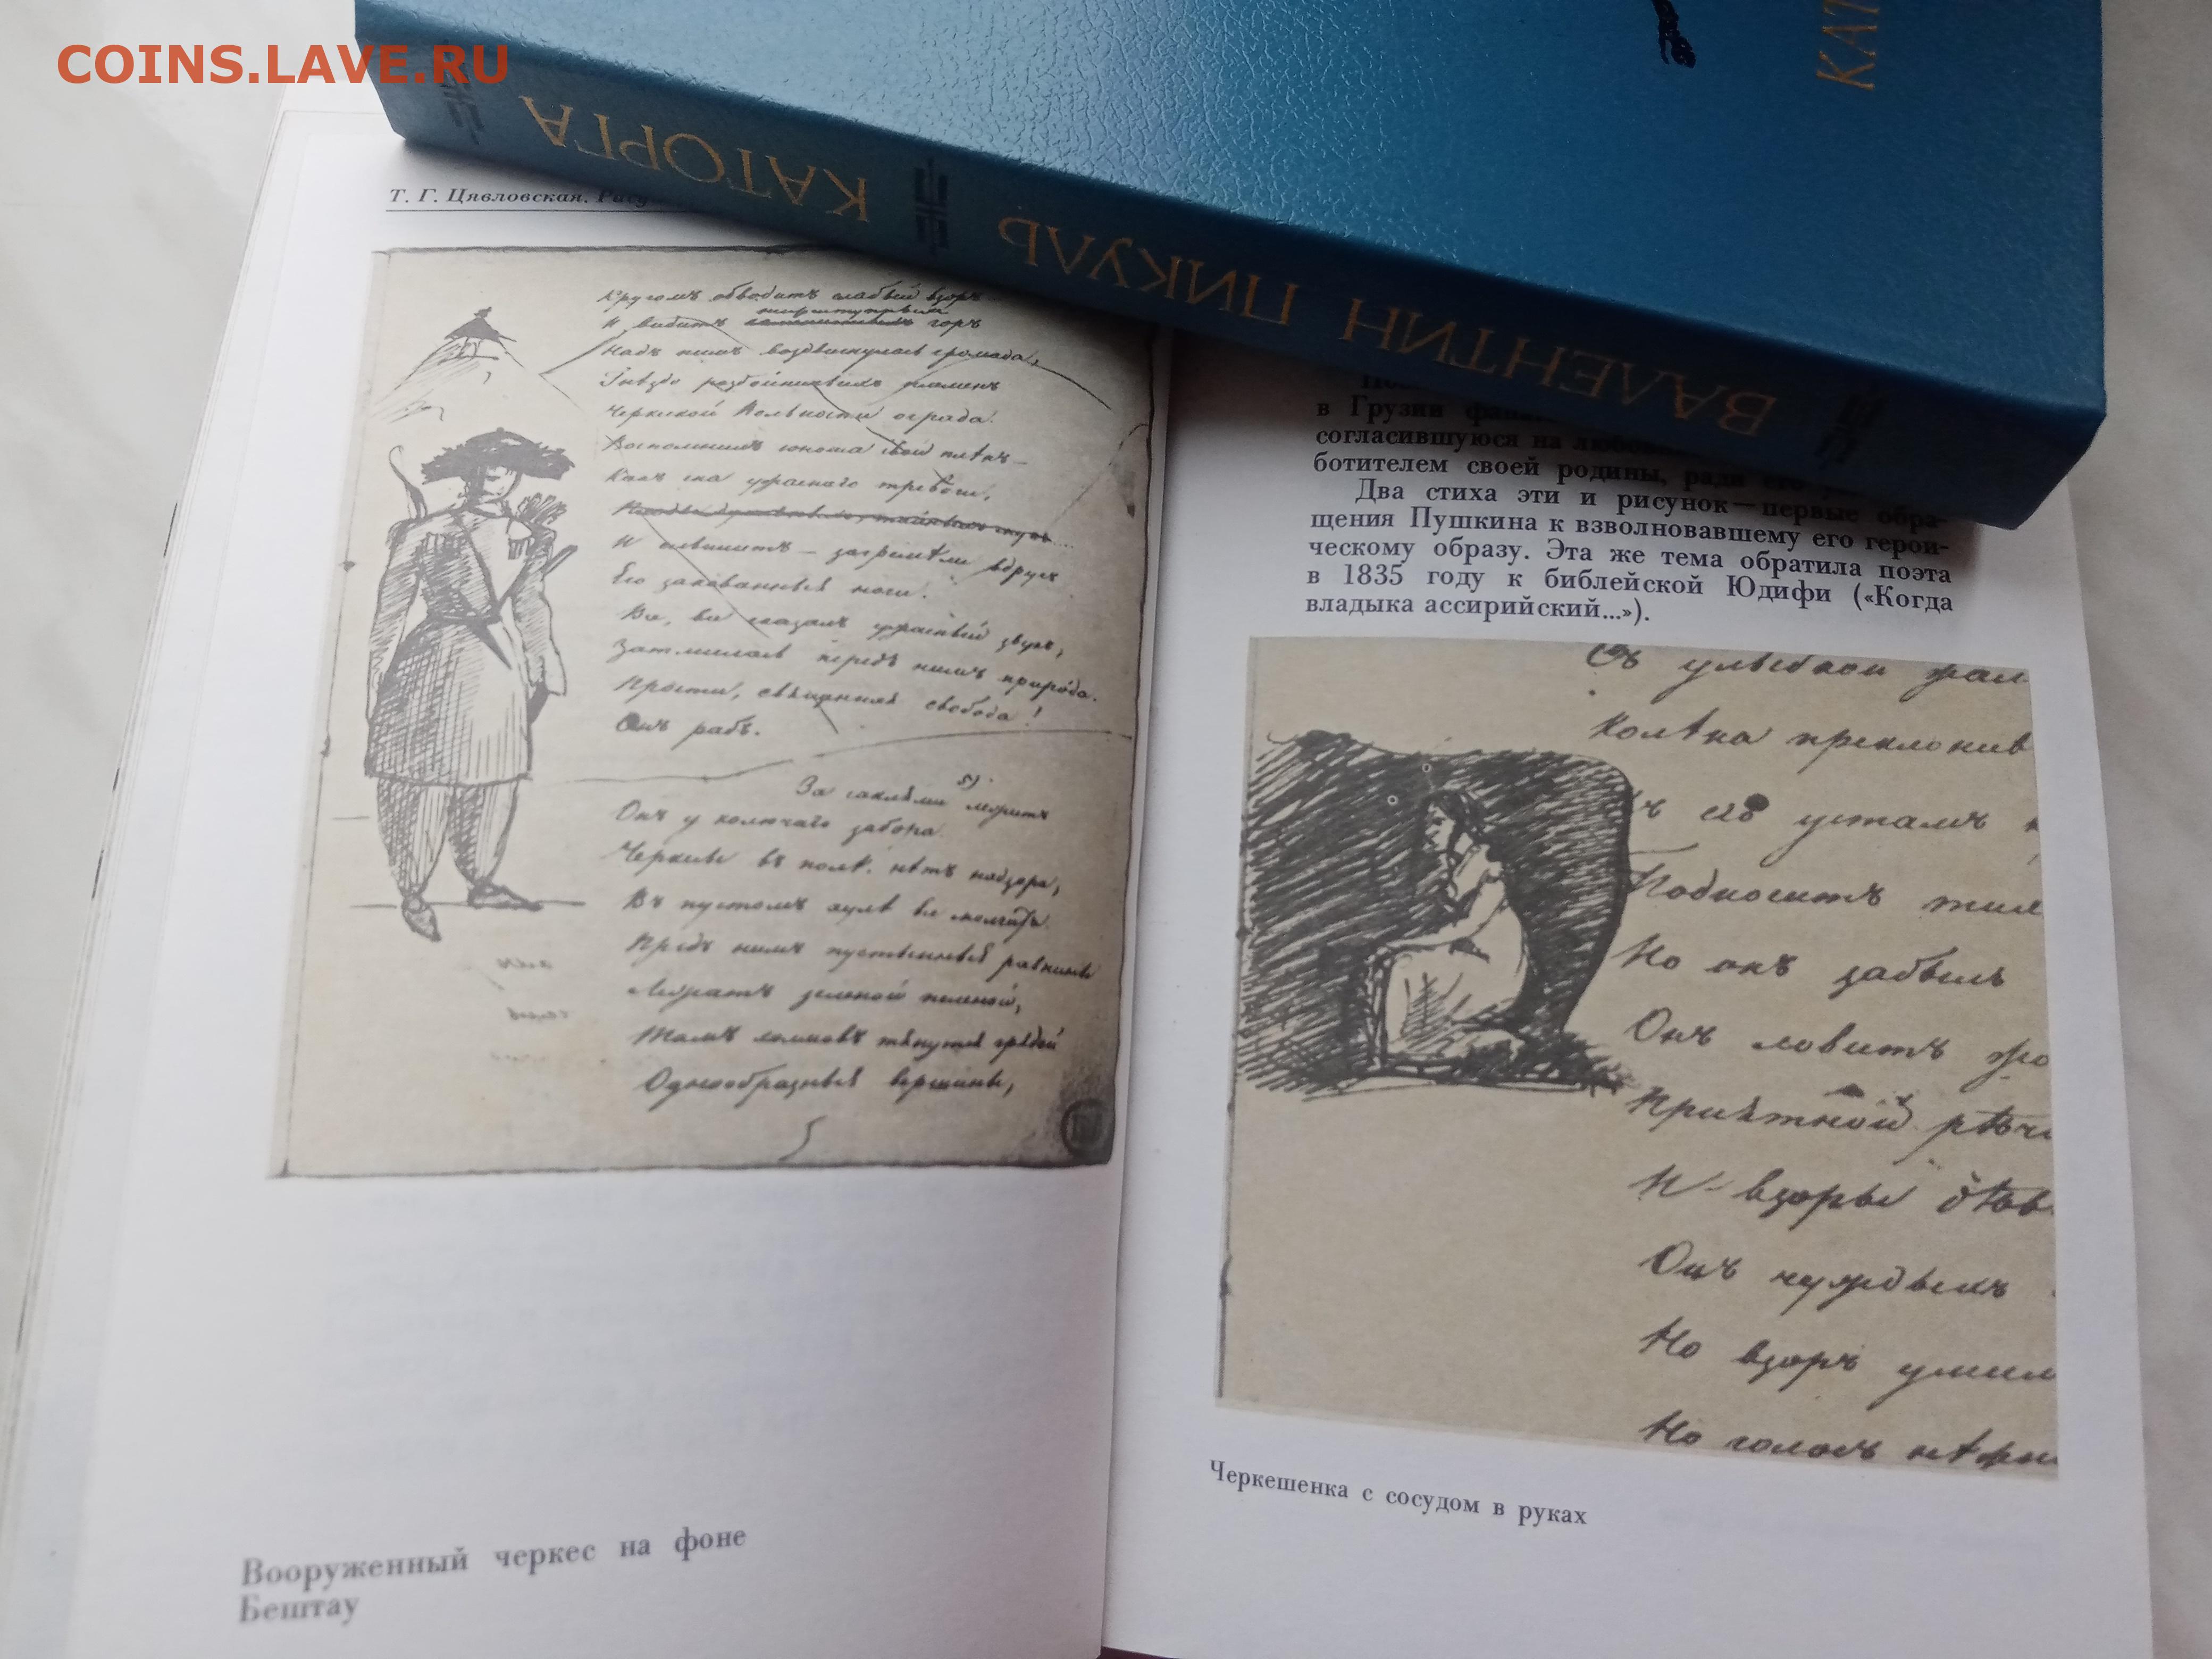 COINS.LAVE.RU
КАТ
ВАЛЕНТИН ПИКУЛЬ КАТОРГА
Т. Г. Цявловская. Рису
Кругомъ обводитъ слабый взоръ
И видитъ неприступныхъ горъ
Надъ нимъ воздвигнулась громада,
Гнѣздо разбойничьихъ племенъ
Черкеской вольности ограда.
Воспомнилъ юноша свой плѣнъ
Какъ сна ужаснаго тревоги,
И слышитъ — загремѣли вдругъ
Его закованныя ноги.
Все, все сказалъ ужасный звукъ,
Затмилась передъ нимъ природа.
Прости, священная свобода!
Онъ рабъ.
За саклями 5) лежитъ
Онъ у колючаго забора.
Черкесы въ полѣ. нѣтъ надзора,
Въ пустомъ аулѣ все молчитъ.
Предъ нимъ пустынныя равнины
Лежатъ зеленой пеленой,
Тамъ холмовъ тянутся грядой
Однообразныя вершины,
Вооруженный черкес на фоне
Бештау
в Грузии
согласившуюся на
ботителем своей родины, ради его
Два стиха эти и рисунок — первые обра-
щения Пушкина к взволновавшему его герои-
ческому образу. Эта же тема обратила поэта
в 1835 году к библейской Юдифи («Когда
владыка ассирийский...»).
Съ улыбкой жал
Колѣна преклонив
къ его устамъ
Подноситъ тих
Но онъ забылъ
Онъ ловитъ жа
Приятной рѣчи
И взоры дѣв
Онъ чуждыхъ
Но взоръ умил
Но голосъ нѣжн
Черкешенка с сосудом в руках